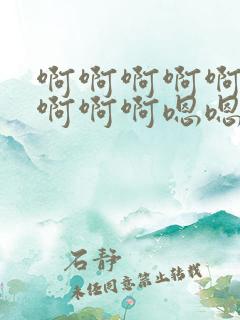 啊啊啊啊啊
啊啊啊嗯嗯
石静
未经同意禁止转载